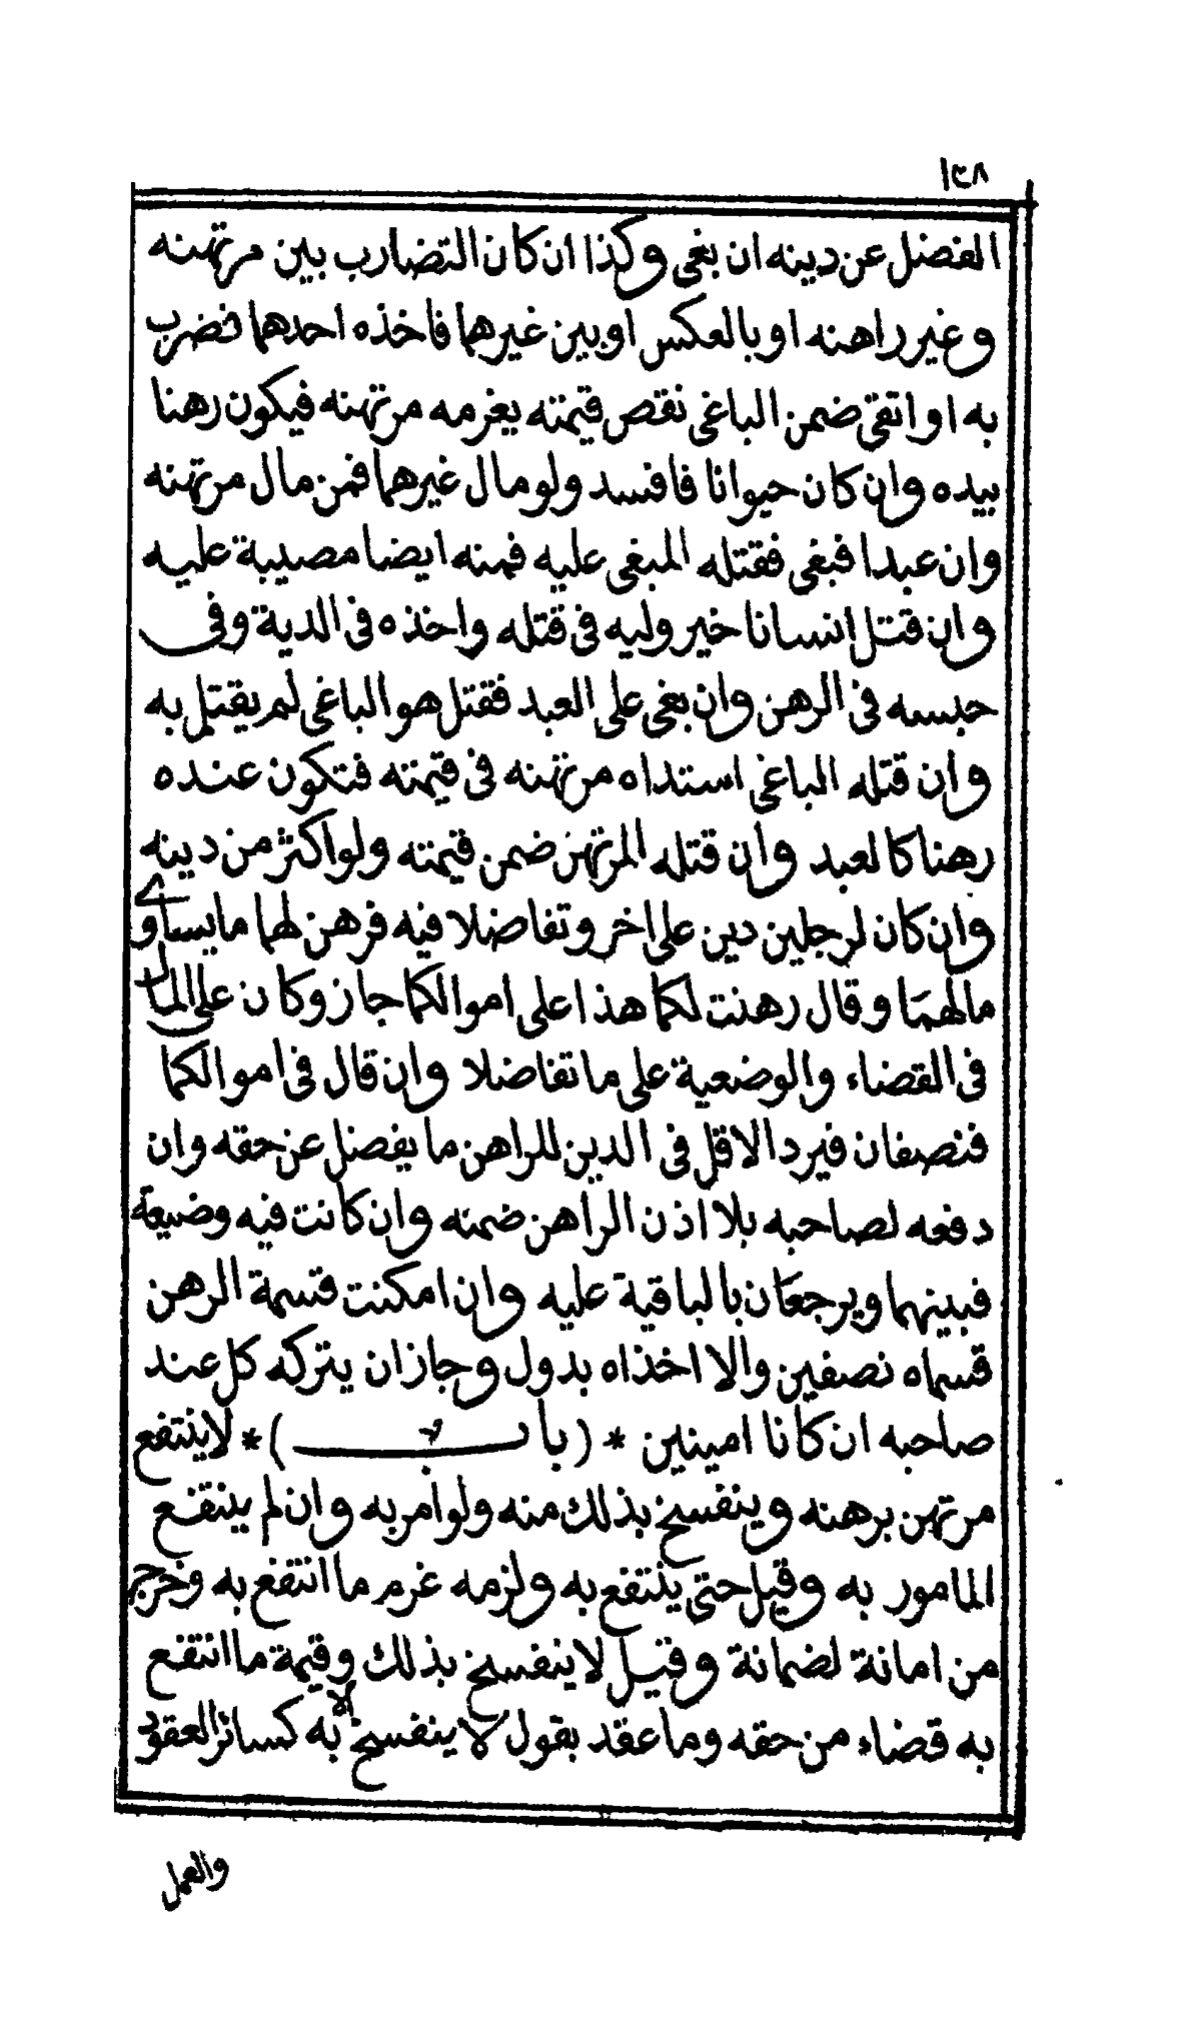 ١٣٨
الفضل عن دينه ان بغى وكذا ان كان التضارب بين مرتهنه
وغير راهنه او بالعكس او بين غيرهما فاخذه احدهما فضرب
به او اتقى ضمن الباغى نقص قيمته يغرمه مرتهنه فيكون رهنا
بيده وان كان حيوانا فافسد ولو مال غيرهما فمن مال مرتهنه
وان عبدا فبغى فقتله المبغى عليه فمنه ايضا مصيبة عليه
وان قتل انسانا خير وليه فى قتله واخذه فى الدية وفى
حبسه فى الرهن وان بغى على العبد فقتل هو الباغى لم يقتل به
وان قتله الباغى استداه مرتهنه فى قيمته فتكون عنده
رهنا كالعبد وان قتله المرتهن ضمن قيمته ولو اكثر من دينه
وان كان لرجلين دين على اخر وتفاضلا فيه فرهن لهما ما يساوى
مالهما وقال رهنت لكما هذا على اموالكما جاز وكان على المال
فى القضاء والوضعية على ما تفاضلا وان قال فى اموالكما
فنصفان فيرد الاقل فى الدين للراهن ما يفضل عن حقه وان
دفعه لصاحبه بلا اذن الراهن ضمنه وان كانت فيه وضيعة
فبينهما ويرجعان بالباقية عليه وان امكنت قسمة الرهن
قسماه نصفين والا اخذاه بدول وجاز ان يتركه كل عند
صاحبه ان كانا امينين * (باب) * لا ينتفع
مرتهن برهنه وينفسخ بذلك منه ولو امر به وان لم ينتفع
المامور به وقيل حتى ينتفع به ولزمه غرم ما انتفع به وخرج
من امانة لضمانة وقيل لا ينفسخ بذلك وقيمة ما انتفع
به قضاء من حقه وما عقد بقول لا ينفسخ الا به كسائر العقود
والعمل